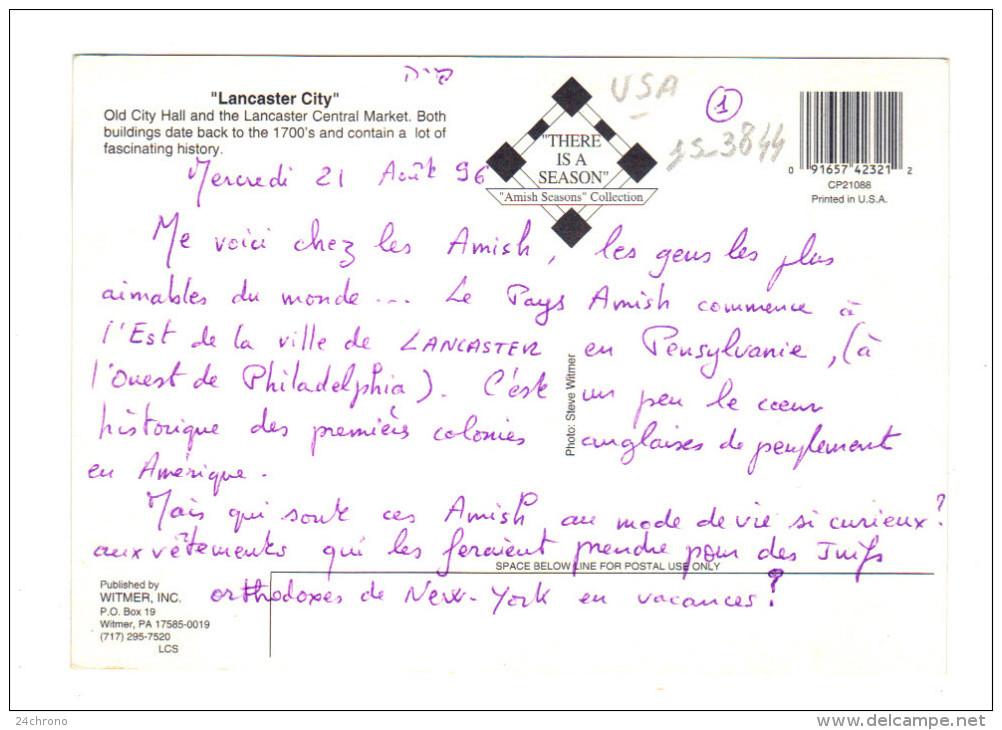 "Lancaster City"
Old City Hall and the Lancaster Central Market. Both
buildings date back to the 1700's and contain a lot of
fascinating history.
"THERE
IS A
SEASON"
"Amish Seasons" Collection
USA
1
0 91657 42321 2
CP21088
Printed in U.S.A.
Mercredi 21 Août 96
Me voici chez les Amish, les gens les plus
aimables du monde... Le Pays Amish commence à
l'Est de la ville de LANCASTER en Pensylvanie, (à
l'Ouest de Philadelphia). C'est un peu le cœur
historique des premières colonies anglaises de peuplement
en Amérique.
Mais qui sont ces Amish, au mode de vie si curieux?
aux vêtements qui les feraient prendre pour des Juifs
orthodoxes de New-York en vacances?
Photo: Steve Witmer
SPACE BELOW LINE FOR POSTAL USE ONLY
Published by
WITMER, INC.
P.O. Box 19
Witmer, PA 17585-0019
(717) 295-7520
LCS
24chrono
www.delcampe.net